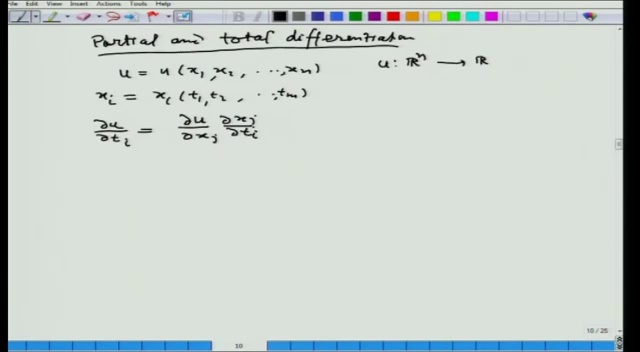 File Edit View Insert Actions Tools Help
Partial and total differentiation
u = u (x₁, x₂, ..., xₙ) u: ℝⁿ → ℝ
xᵢ = xᵢ (t₁, t₂, ..., tₘ)
∂u/∂tᵢ = ∂u/∂xⱼ ∂xⱼ/∂tᵢ
10 / 25
10